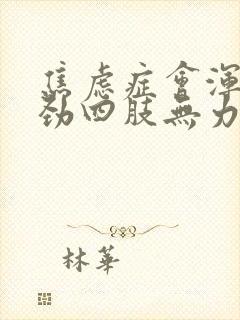 焦虑症會渾
劲四肢無力
林華